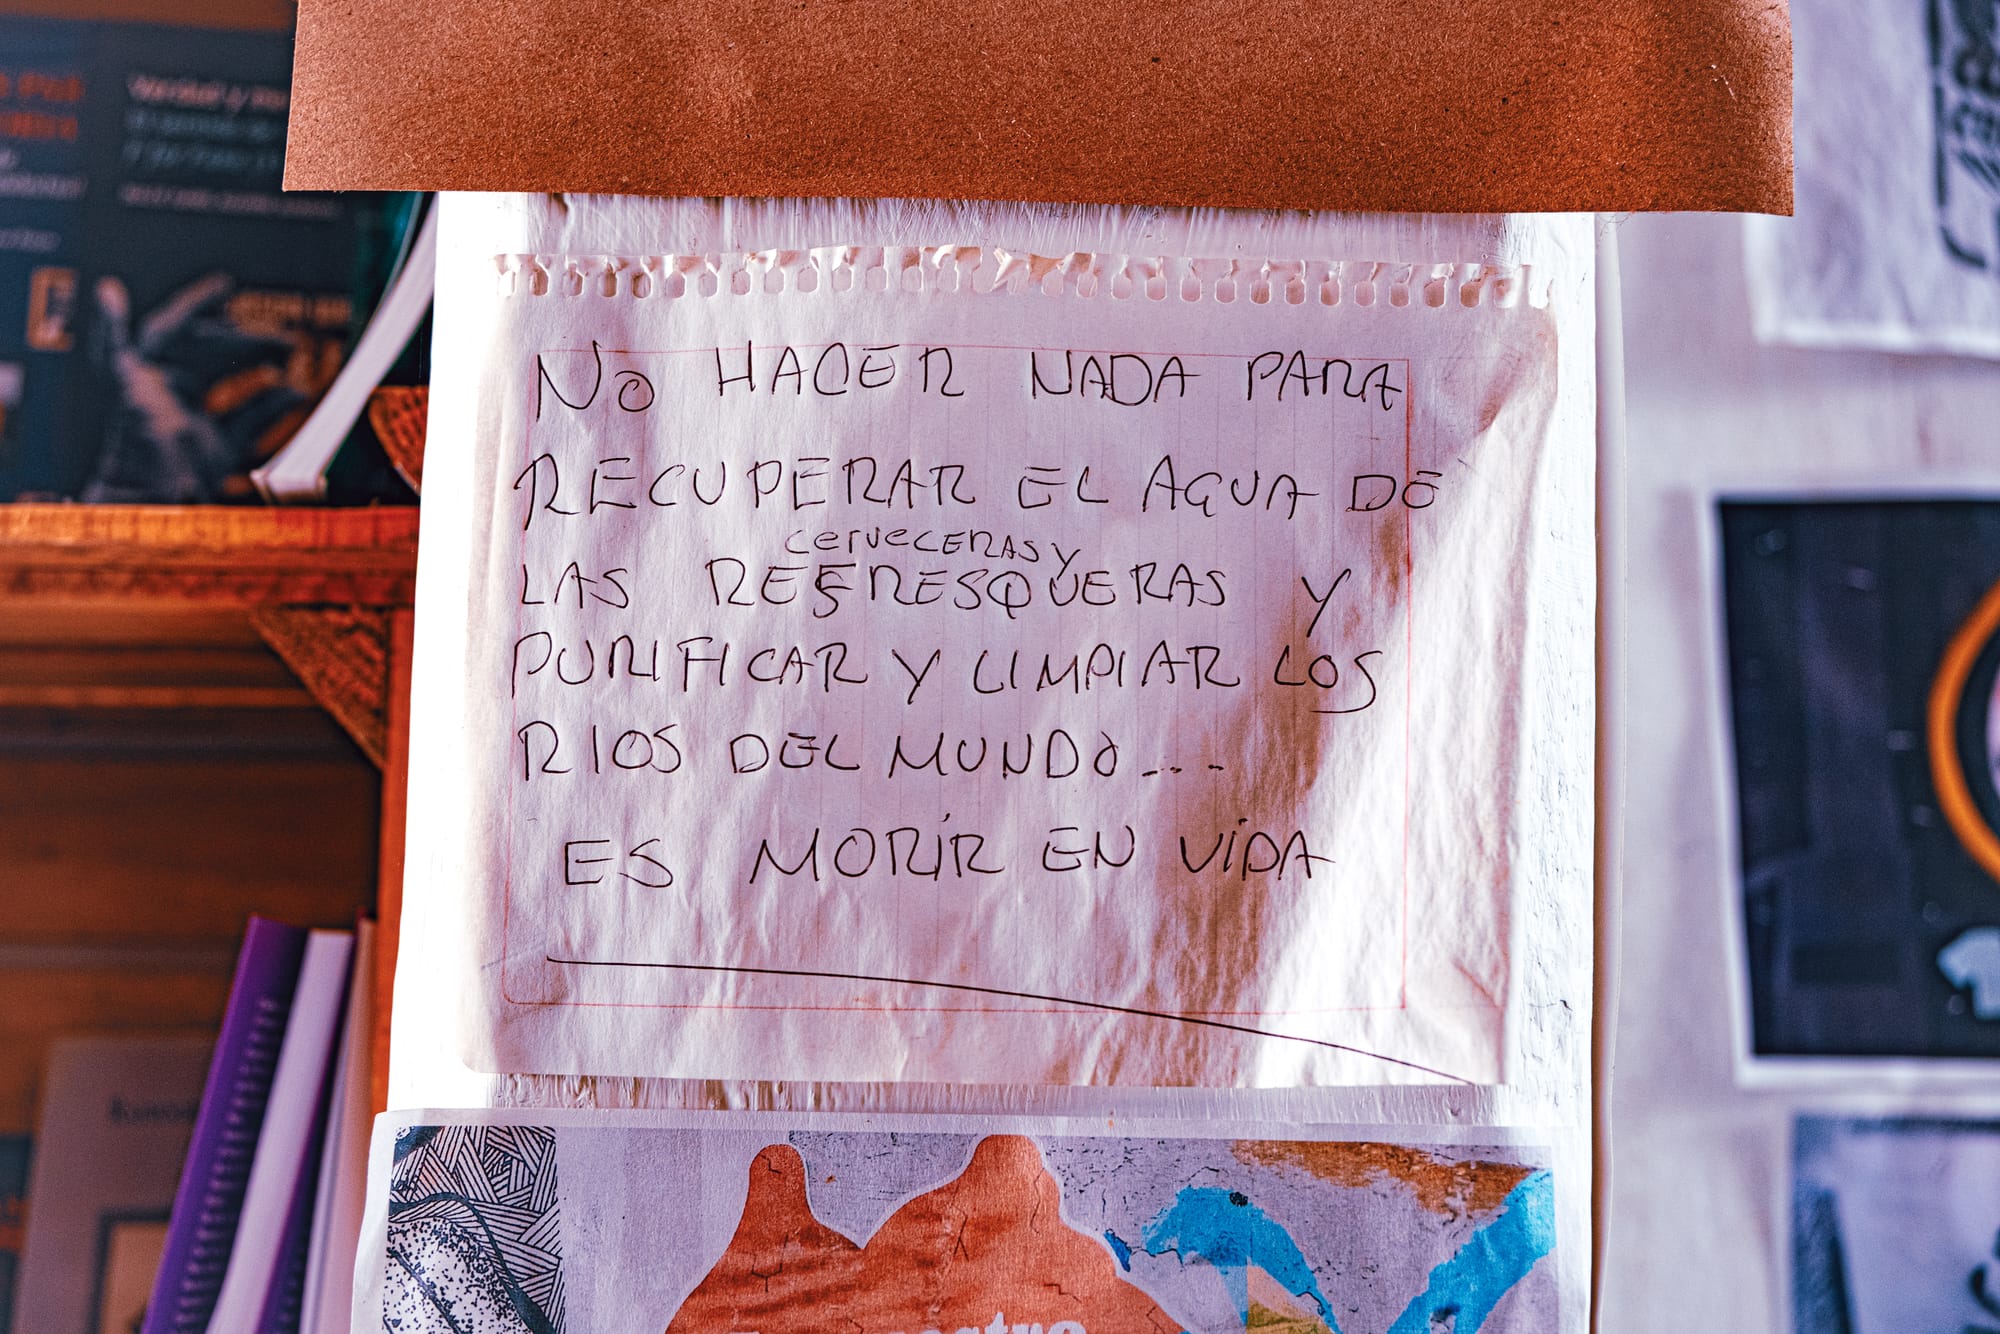 Verdad y
NO HACER NADA PARA
RECUPERAR EL AGUA DE
cerveceras y
LAS REFRESQUERAS Y
PURIFICAR Y LIMPIAR LOS
RIOS DEL MUNDO...
ES MORIR EN VIDA